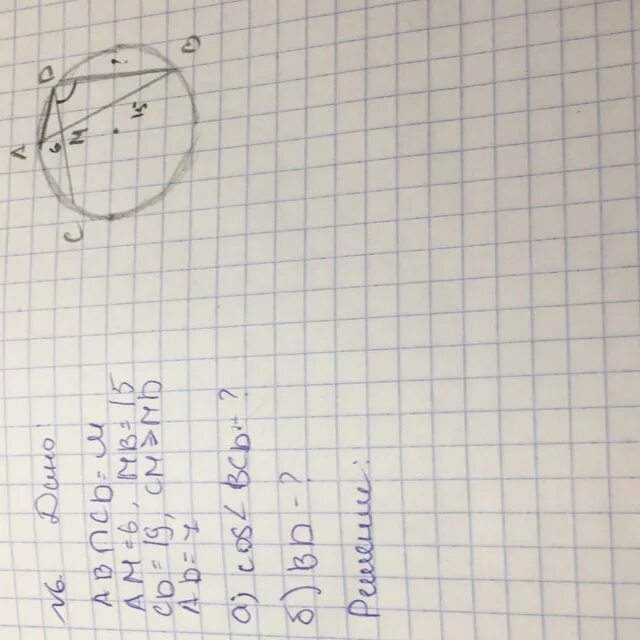 №. Дано:
AB∩CD=M
AM=6, MB=15
CD=19, CM>MD
AD=7
а) cos∠BCD-?
б) BD-?
Решение:
A
D
B
C
M
6
15
?